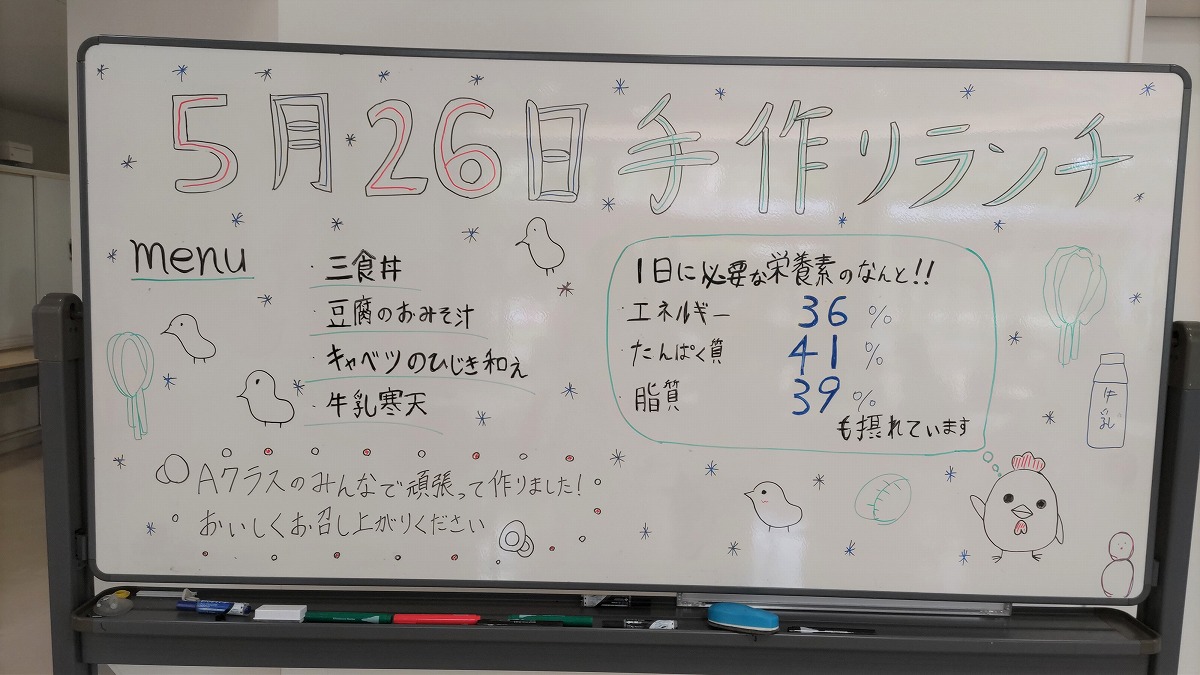 5月26日手作リランチ
menu
・三食丼
・豆腐のおみそ汁
・キャベツのひじき和え
・牛乳寒天
1日に必要な栄養素のなんと!!
・エネルギー 36 %
・たんぱく質 41 %
・脂質 39 %
も摂れています
牛乳
Aクラスのみんなで頑張って作りました!
おいしくお召し上がりください